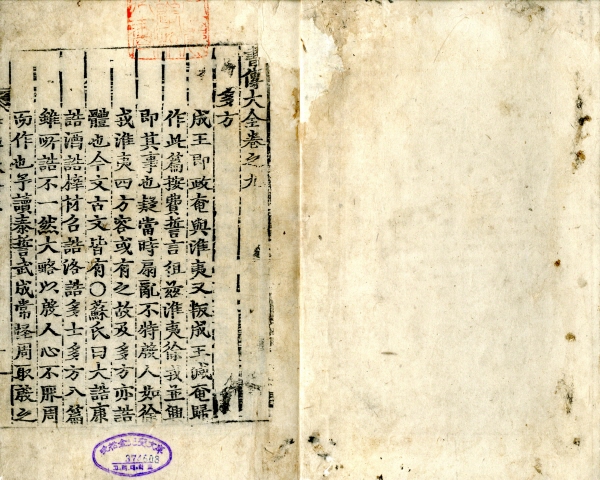 書傳大全卷之九
多方
成王即政奄與淮夷又叛成王滅奄歸
作此篇按費誓言徂玆淮夷徐戎並興
即其事也疑當時扇亂不特殷人如徐
戎淮夷四方容或有之故及多方亦誥
體也今文古文皆有○蘇氏曰大誥康
誥酒誥梓材召誥洛誥多士多方八篇
雖所誥不一然大略以殷人心不服周
而作也予讀泰誓武成常怪周取殷之